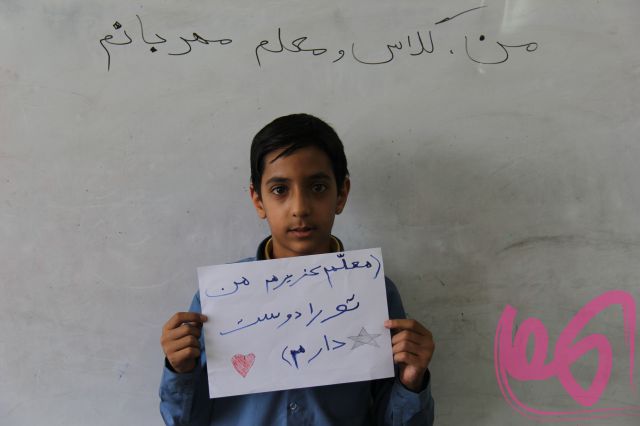 من، کلاس و معلم مهربانم
(معلّم عزیزم من
تو را دوست
دارم)